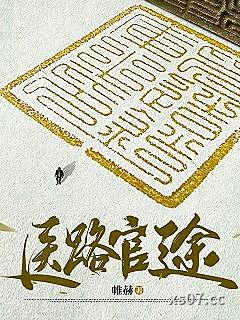 医路官途
帷赫 著
xs07.cc